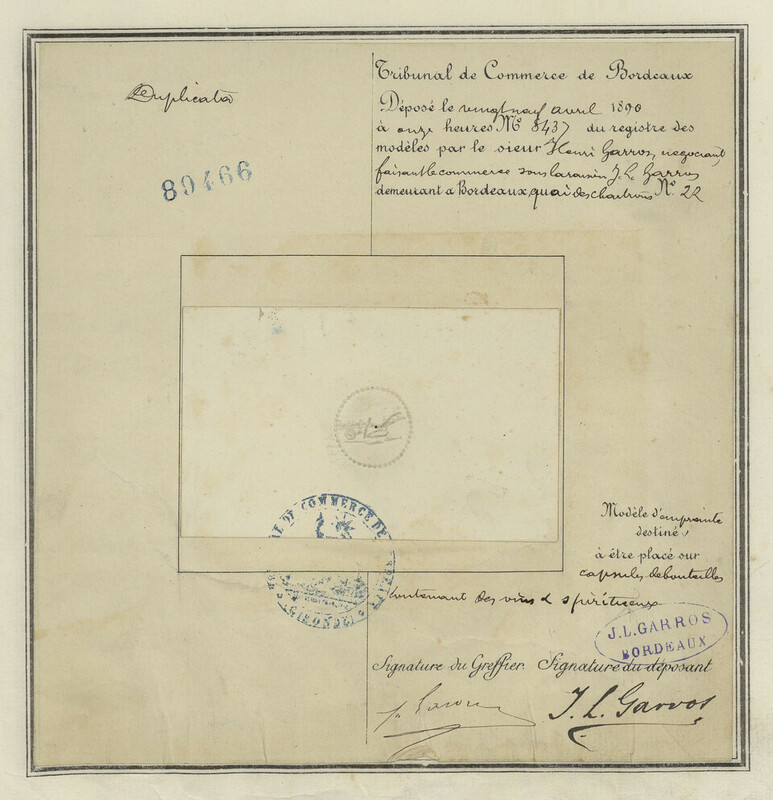 Duplicata
89466
Tribunal de Commerce de Bordeaux
Déposé le vingt neuf avril 1890
à onze heures N° 8437 du registre des
modèles par le sieur Henri Garros, négociant
faisant le commerce sous la raison J. L. Garros
demeurant à Bordeaux, quai des Chartrons N° 22
TRIBUNAL DE COMMERCE DE BORDEAUX
(GIRONDE)
Modèle d'empreinte
destiné
à être placé sur
capsules de bouteilles
contenant des vins & spiritueux
J.L.GARROS
BORDEAUX
Signature du Greffier. Signature du déposant
J. L. Garros